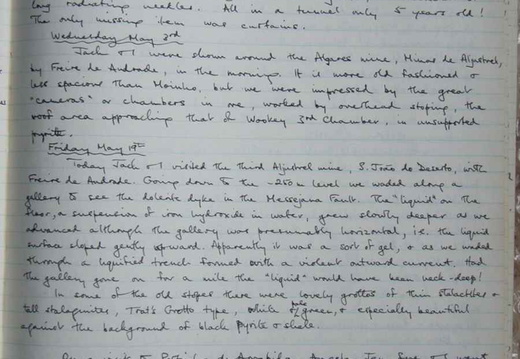 long radiating needles. All in a tunnel only 5 years old!
The only missing item was curtains.
Wednesday May 3rd
Jack & I were shown around the Algares mine, Minas de Aljustrel,
by Freire de Andrade, in the morning. It is more old fashioned &
less spacious than Moinho, but we were impressed by the great
"cameras" or chambers in ore, worked by overhead stoping, the
roof area approaching that of Wookey 3rd Chamber, in unsupported
pyrite.
Friday May 19th
Today Jack & I visited the third Aljustrel mine, S. João do Deserto, with
Freire de Andrade. Going down to the -250m level we waded along a
gallery to see the dolerite dyke in the Messejana Fault. The "liquid" on the
floor, a suspension of iron hydroxide in water, grew slowly deeper as we
advanced although the gallery was presumably horizontal, i.e. the liquid
surface sloped gently upward. Apparently it was a sort of gel, & as we waded
through a liquified trench formed with a violent outward current. Had
the gallery gone on for a mile the "liquid" would have been neck-deep!
In some of the old stopes there were lovely grottos of thin stalactites &
tall stalagmites, Trat's Grotto type, white & pale green, & especially beautiful
against the background of black pyrite & shale.